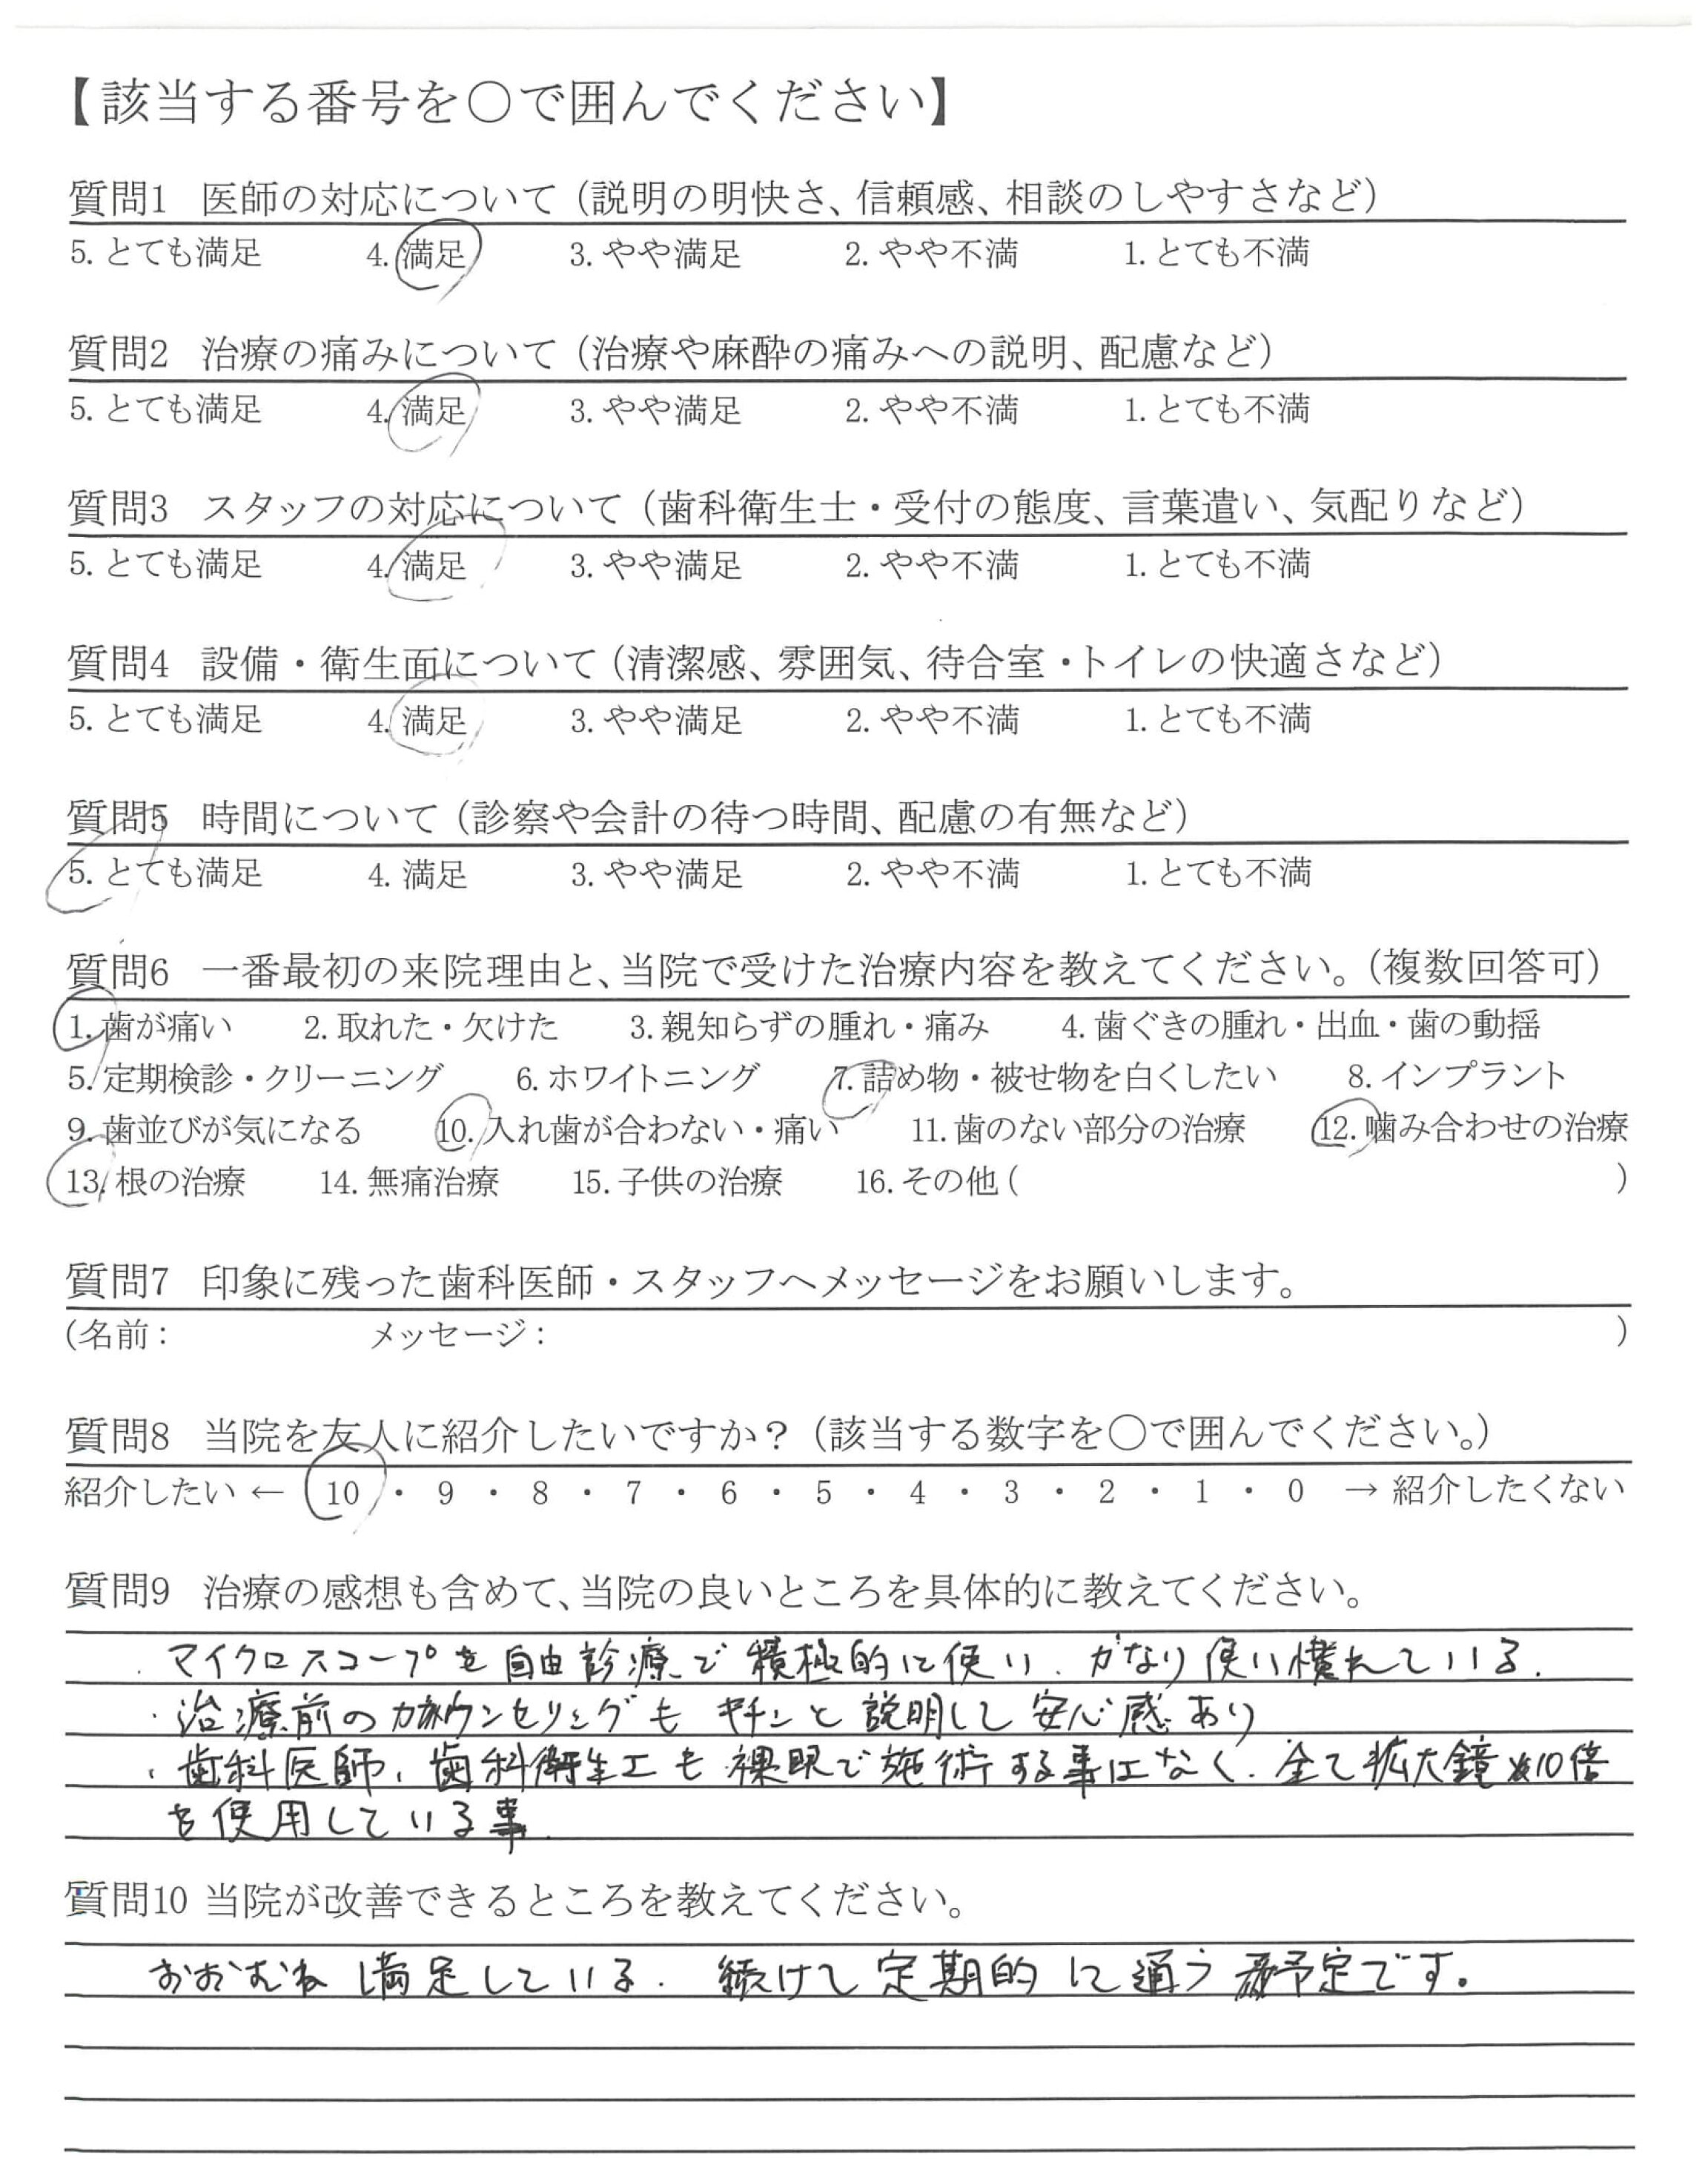 【該当する番号を○で囲んでください】
質問1 医師の対応について（説明の明快さ、信頼感、相談のしやすさなど）
5. とても満足 4. 満足 3. やや満足 2. やや不満 1. とても不満
質問2 治療の痛みについて（治療や麻酔の痛みへの説明、配慮など）
5. とても満足 4. 満足 3. やや満足 2. やや不満 1. とても不満
質問3 スタッフの対応について（歯科衛生士・受付の態度、言葉遣い、気配りなど）
5. とても満足 4. 満足 3. やや満足 2. やや不満 1. とても不満
質問4 設備・衛生面について（清潔感、雰囲気、待合室・トイレの快適さなど）
5. とても満足 4. 満足 3. やや満足 2. やや不満 1. とても不満
質問5 時間について（診察や会計の待つ時間、配慮の有無など）
5. とても満足 4. 満足 3. やや満足 2. やや不満 1. とても不満
質問6 一番最初の来院理由と、当院で受けた治療内容を教えてください。（複数回答可）
1. 歯が痛い 2. 取れた・欠けた 3. 親知らずの腫れ・痛み 4. 歯ぐきの腫れ・出血・歯の動揺
5. 定期検診・クリーニング 6. ホワイトニング 7. 詰め物・被せ物を白くしたい 8. インプラント
9. 歯並びが気になる 10. 入れ歯が合わない・痛い 11. 歯のない部分の治療 12. 噛み合わせの治療
13. 根の治療 14. 無痛治療 15. 子供の治療 16. その他（ ）
質問7 印象に残った歯科医師・スタッフへメッセージをお願いします。
（名前： メッセージ： ）
質問8 当院を友人に紹介したいですか？（該当する数字を○で囲んでください。）
紹介したい ← 10 ・ 9 ・ 8 ・ 7 ・ 6 ・ 5 ・ 4 ・ 3 ・ 2 ・ 1 ・ 0 → 紹介したくない
質問9 治療の感想も含めて、当院の良いところを具体的に教えてください。
・マイクロスコープを自由診療で積極的に使い、かなり使い慣れている。
・治療前のカウンセリングもキチンと説明して安心感あり
・歯科医師、歯科衛生士も裸眼で施術する事はなく、全て拡大鏡×10倍
を使用している事。
質問10 当院が改善できるところを教えてください。
おおむね満足している。続けて定期的に通う予定です。